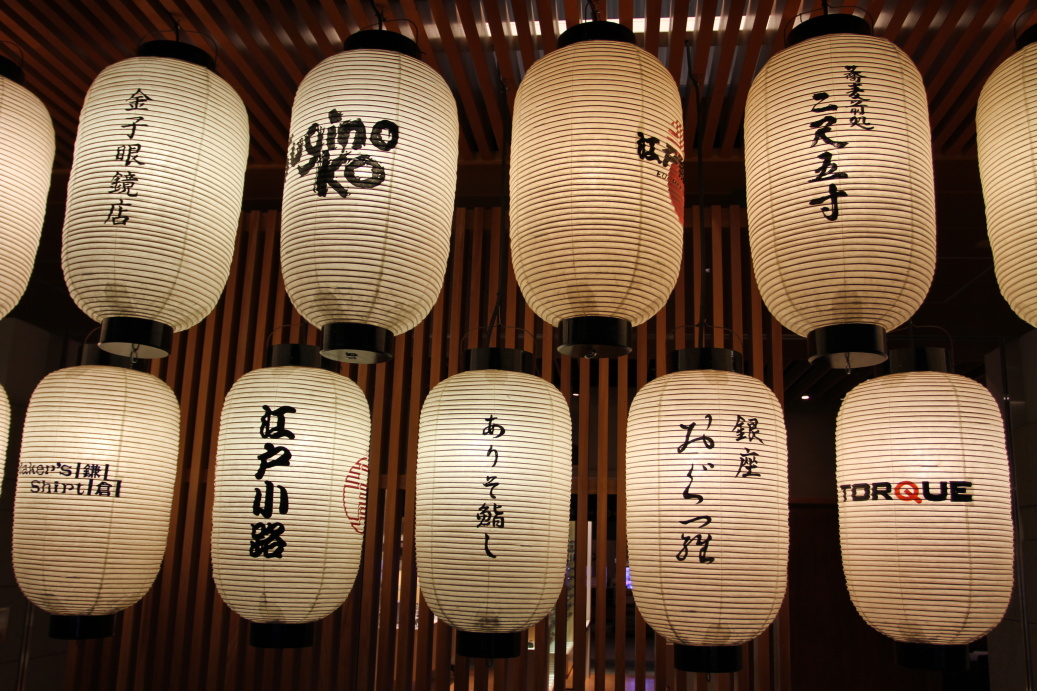 金子眼鏡店
ugino
KO
江戸
蕎麦処
二尺五寸
aker's 鎌
Shirt 倉
江戸小路
ありそ鮨し
銀座
おぐ羅
TORQUE